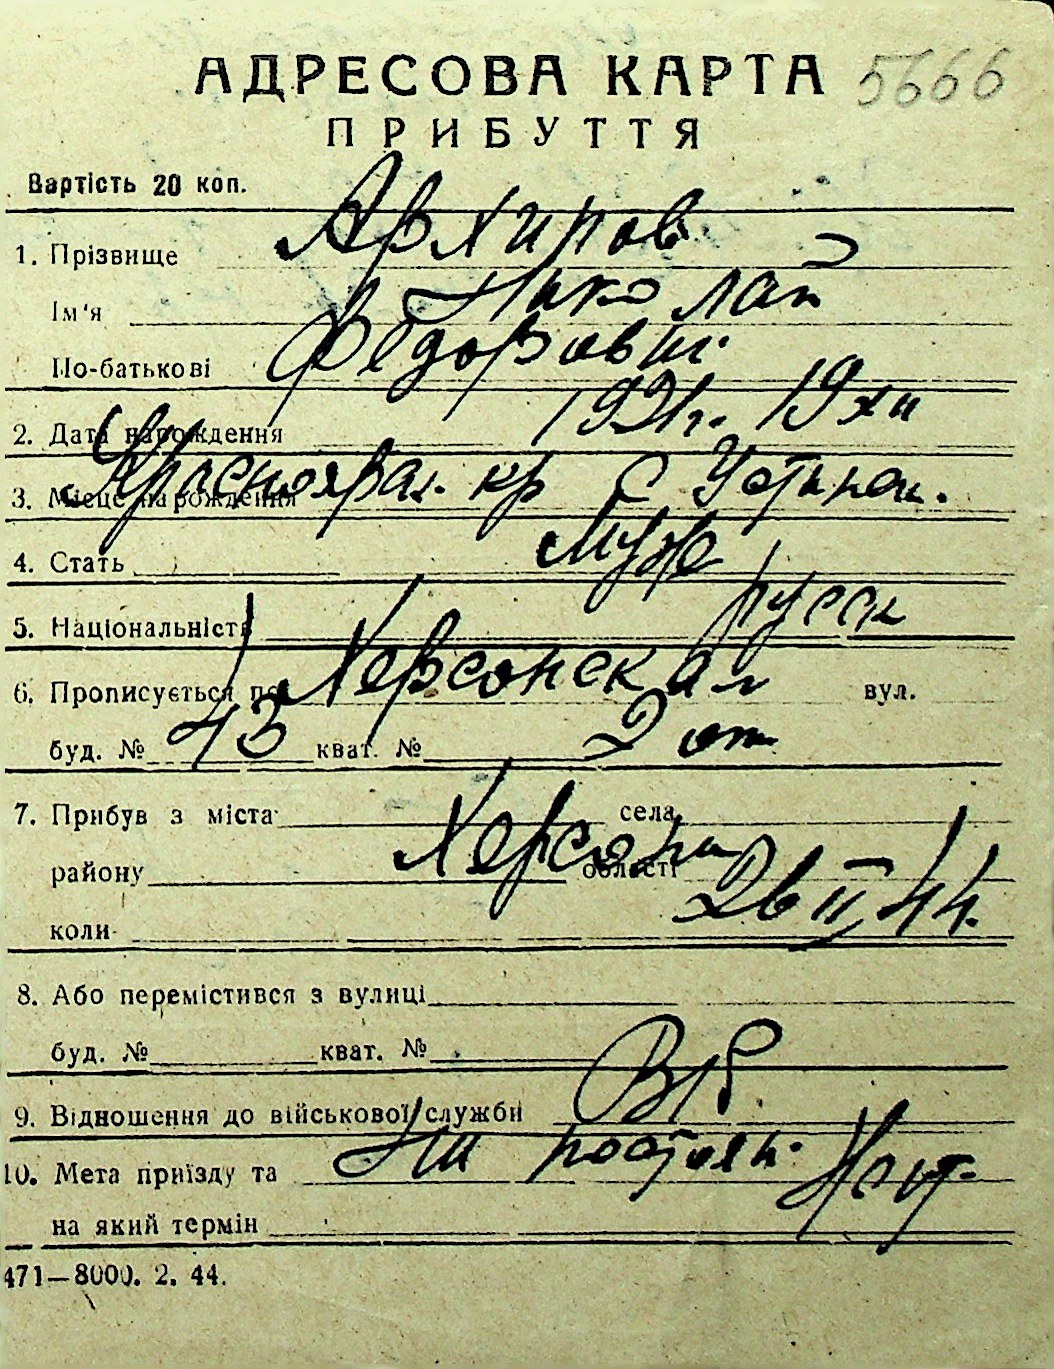 АДРЕСОВА КАРТА 5666
ПРИБУТТЯ
Вартість 20 коп.
1. Прізвище Архипов
Ім'я Николай
По-батькові Федорович
2. Дата народження 1921г. 19 XII
3. Місце народження Красноярск. кр с
4. Стать муж
5. Національність русск
6. Прописується по Херсонская вул.
буд. № 43 кват. № 2
7. Прибув з міста села
району Херсона області
коли 26 II 44.
8. Або перемістився з вулиці
буд. № кват. №
9. Відношення до військової служби
10. Мета приїзду та На постоян.
на який термін
471—8000. 2. 44.